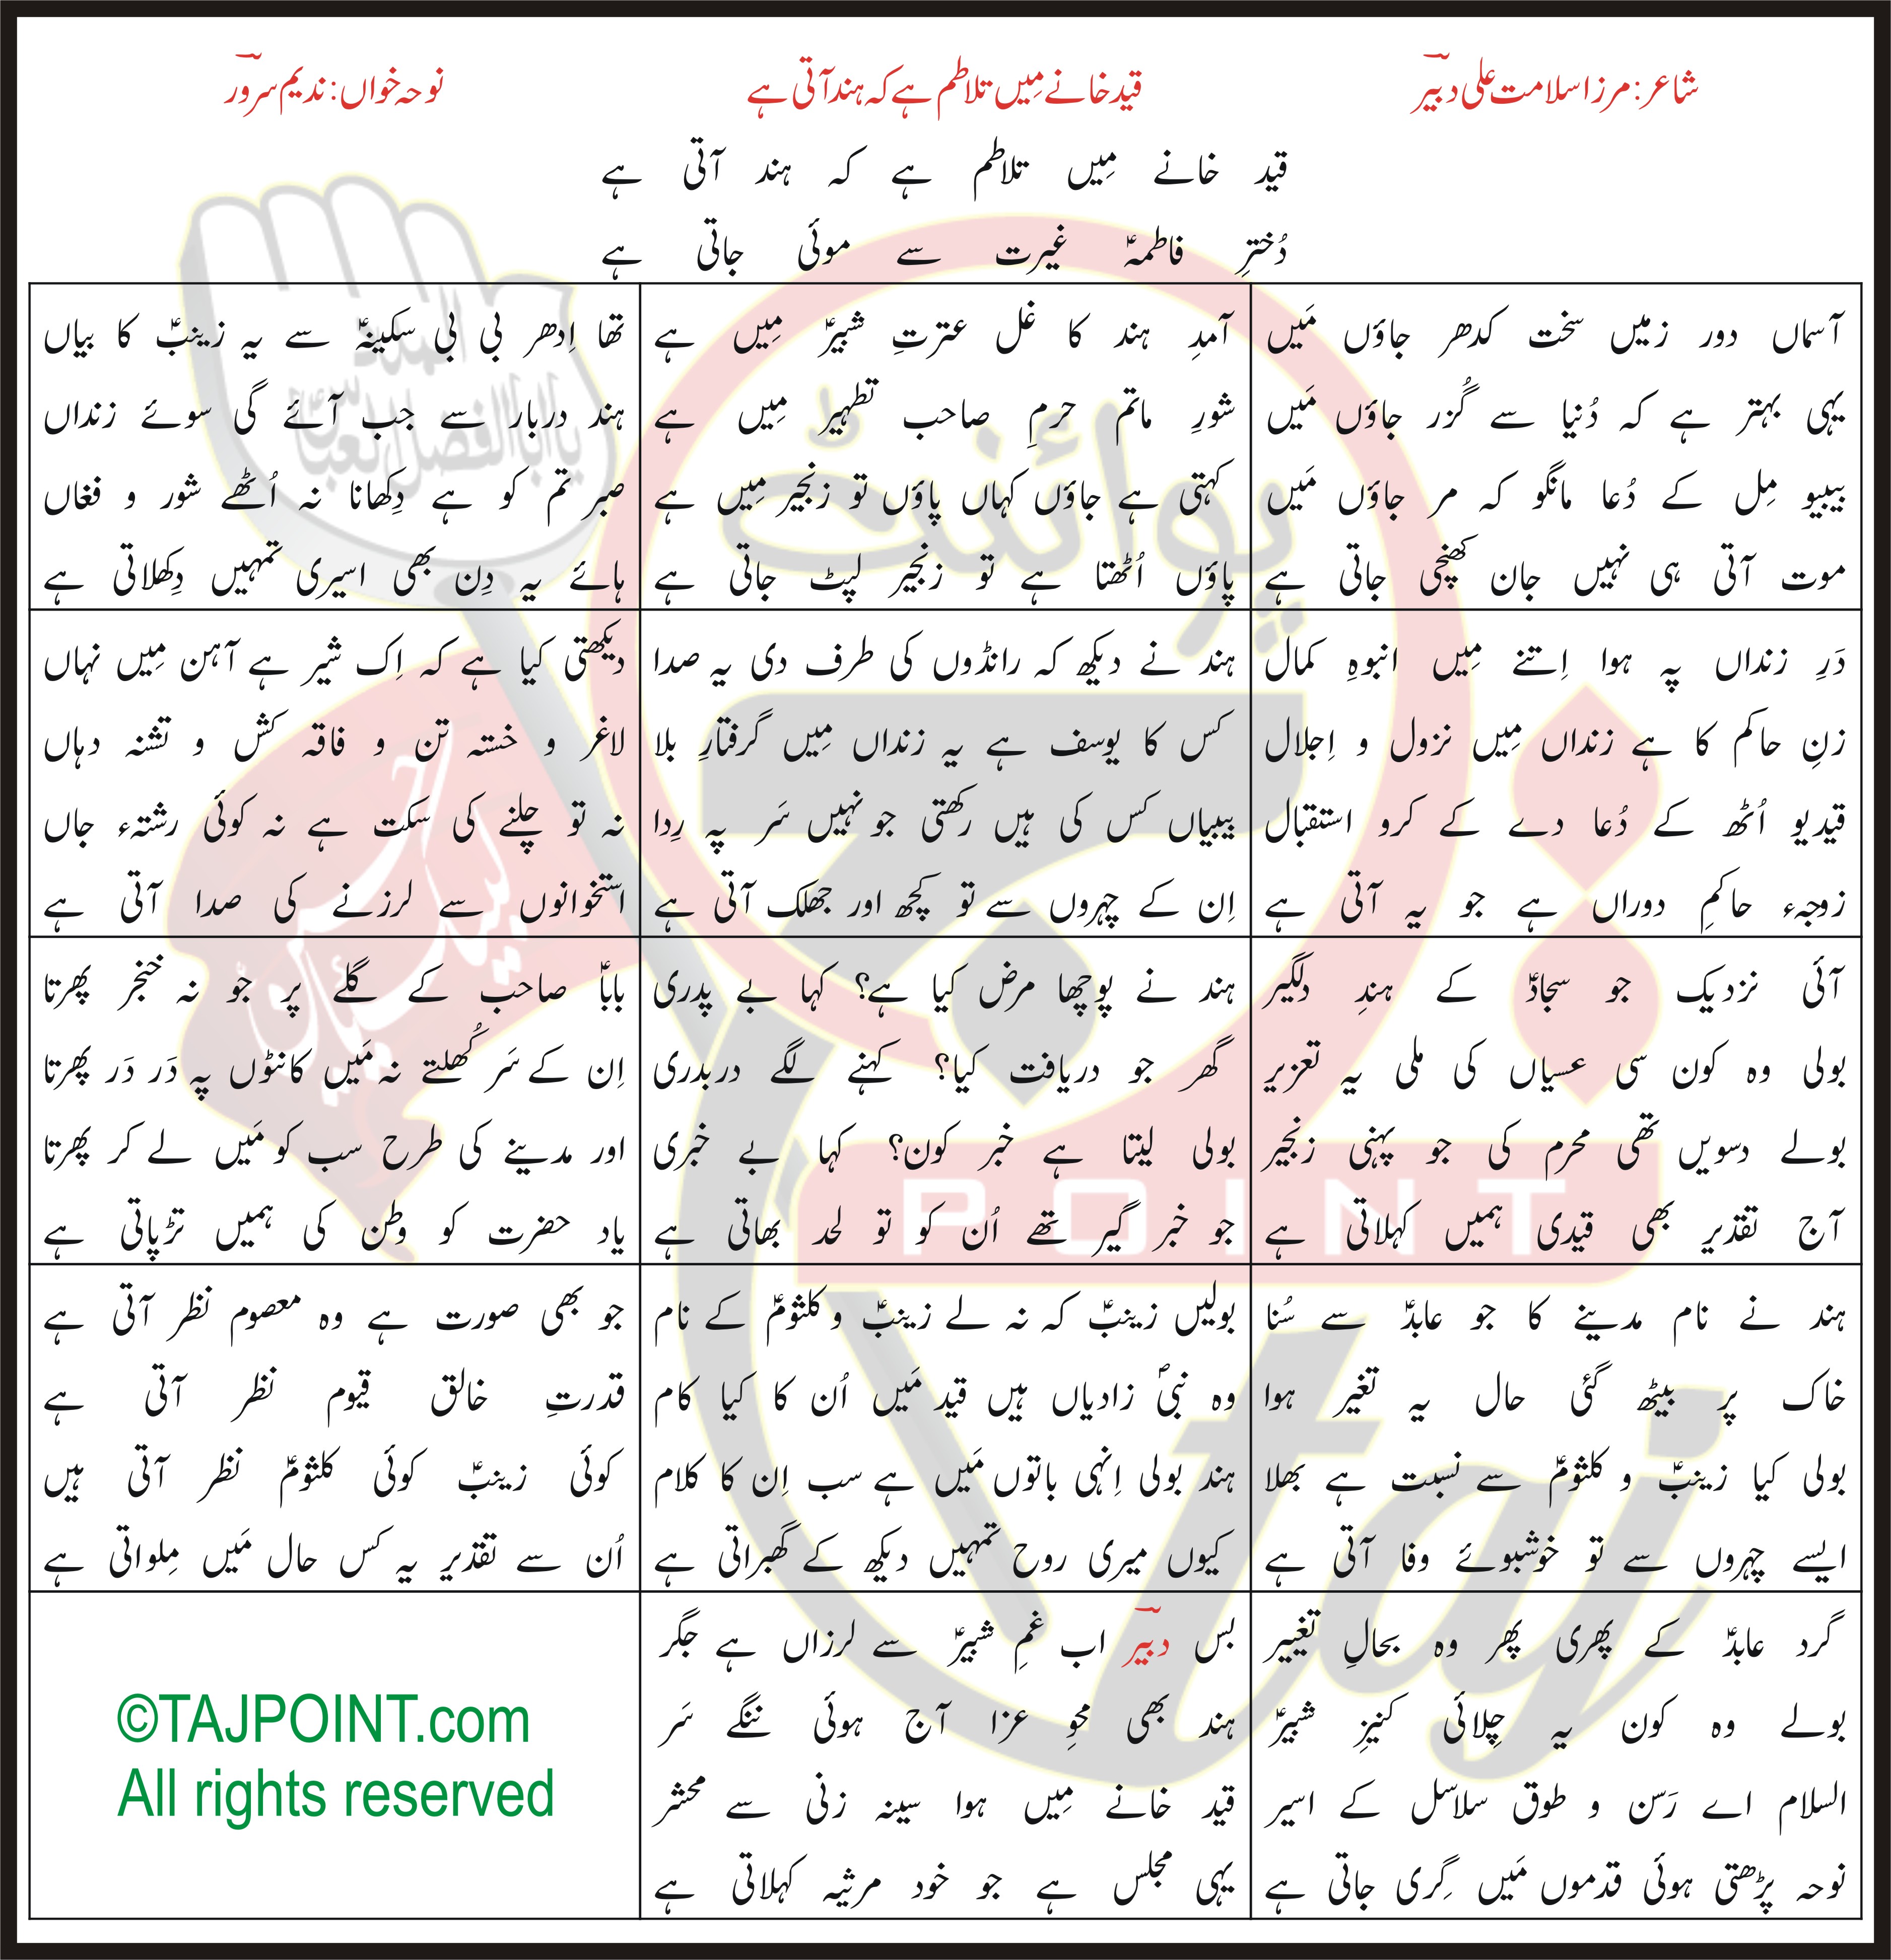 شاعر: مرزا سلامت علی دبیرؔ
قید خانے مِیں تلاطم ہے کہ ہند آتی ہے
نوحہ خواں: ندیم سرورؔ
قید خانے مِیں تلاطم ہے کہ ہند آتی ہے
دُخترِ فاطمہؑ غیرت سے موئی جاتی ہے
آسماں دور زمیں سخت کدھر جاؤں مَیں
یہی بہتر ہے کہ دُنیا سے گُزر جاؤں مَیں
بیبیو مِل کے دُعا مانگو کہ مر جاؤں مَیں
موت آتی ہی نہیں جان کھنچی جاتی ہے
آمدِ ہند کا غل عترتِ شبیرؑ مِیں ہے
شورِ ماتم حرمِ صاحب تطہیر مِیں ہے
کہتی ہے جاؤں کہاں پاؤں تو زنجیر مِیں ہے
پاؤں اُٹھتا ہے تو زنجیر لپٹ جاتی ہے
تھا اِدھر بی بی سکینہؑ سے یہ زینبؑ کا بیاں
ہند دربار سے جب آئے گی سوئے زنداں
صبر تم کو ہے دِکھانا نہ اُٹھے شور و فغاں
ہائے یہ دِن بھی اسیری تمہیں دِکھلاتی ہے
دَرِ زنداں پہ ہوا اِتنے مِیں انبوہِ کمال
زنِ حاکم کا ہے زنداں مِیں نزول و اِجلال
قیدیو اُٹھ کے دُعا دے کے کرو استقبال
زوجہء حاکمِ دوراں ہے جو یہ آتی ہے
ہند نے دیکھ کہ رانڈوں کی طرف دی یہ صدا
کس کا یوسف ہے یہ زنداں مِیں گرفتارِ بلا
بیبیاں کس کی ہیں رکھتی جو نہیں سَر پہ رِدا
اِن کے چہروں سے تو کچھ اور جھلک آتی ہے
دیکھتی کیا ہے کہ اِک شیر ہے آہن مِیں نہاں
لاغر و خستہ تن و فاقہ کش و تشنہ دہاں
نہ تو چلنے کی سکت ہے نہ کوئی رشتہء جاں
استخوانوں سے لرزنے کی صدا آتی ہے
آئی نزدیک جو سجادؑ کے ہندِ دلگیر
بولی وہ کون سی عسیاں کی ملی یہ تعزیر
بولے دسویں تھی محرم کی جو پہنی زنجیر
آج تقدیر بھی قیدی ہمیں کہلاتی ہے
ہند نے پوچھا مرض کیا ہے؟ کہا بے پدری
گھر جو دریافت کیا؟ کہنے لگے دربدری
بولی لیتا ہے خبر کون؟ کہا بے خبری
جو خبر گیر تھے اُن کو تو لحد بھاتی ہے
باباؑ صاحب کے گلے پر جو نہ خنجر پھرتا
اِن کے سَر کُھلتے نہ مَیں کانٹوں پہ دَر دَر پھرتا
اور مدینے کی طرح سب کو مَیں لے کر پھرتا
یاد حضرت کو وطن کی ہمیں تڑپاتی ہے
ہند نے نام مدینے کا جو عابدؑ سے سُنا
خاک پر بیٹھ گئی حال یہ تغیر ہوا
بولی کیا زینبؑ و کلثومؑ سے نسبت ہے بھلا
ایسے چہروں سے تو خوشبوئے وفا آتی ہے
بولیں زینبؑ کہ نہ لے زینبؑ و کلثومؑ کے نام
وہ نبیؐ زادیاں ہیں قید مَیں اُن کا کیا کام
ہند بولی اِنہی باتوں مَیں ہے سب اِن کا کلام
کیوں میری روح تمہیں دیکھ کے گھبراتی ہے
جو بھی صورت ہے وہ معصوم نظر آتی ہے
قدرتِ خالق قیوم نظر آتی ہے
کوئی زینبؑ کوئی کلثومؑ نظر آتی ہیں
اُن سے تقدیر یہ کس حال مَیں مِلواتی ہے
گرد عابدؑ کے پھری پھر وہ بحالِ تغییر
بولے وہ کون یہ چِلائی کنیزِ شبیرؑ
السلام اے رَسن و طوق سلاسل کے اسیر
نوحہ پڑھتی ہوئی قدموں مَیں گِری جاتی ہے
بس دبیرؔ اب غمِ شبیرؑ سے لرزاں ہے جگر
ہند بھی محوِ عزا آج ہوئی ننگے سَر
قید خانے مِیں ہوا سینہ زنی سے محشر
یہی مجلس ہے جو خود مرثیہ کہلاتی ہے
©TAJPOINT.com
All rights reserved
پوائنٹ
POINT
taj